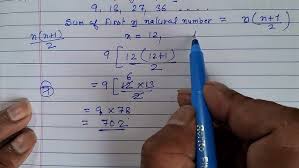 9, 18, 27, 36 .....
Sum of first n natural number = n(n+1)/2
n(n+1)/2
n = 12,
9 [ 12 (12+1) / 2
= 9 [ 12 × 13 / 2
6
= 9 × 78
= 702